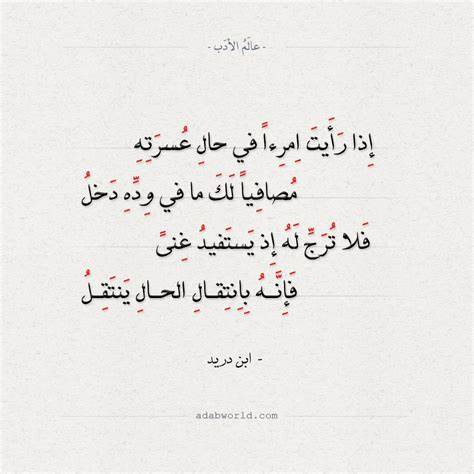 - عالَمُ الأدَب -
إِذا رَأَيتَ اِمرِءاً في حالِ عُسرَتِهِ
مُصافِياً لَكَ ما في وِدِّهِ دَخلُ
فَلا تُرَجِّ لَهُ إِذ يَستَفيدُ غِنىً
فَإِنَّـهُ بِاِنتِقـالِ الحـالِ يَنتَقِـلُ
- ابن دريد
adabworld.com